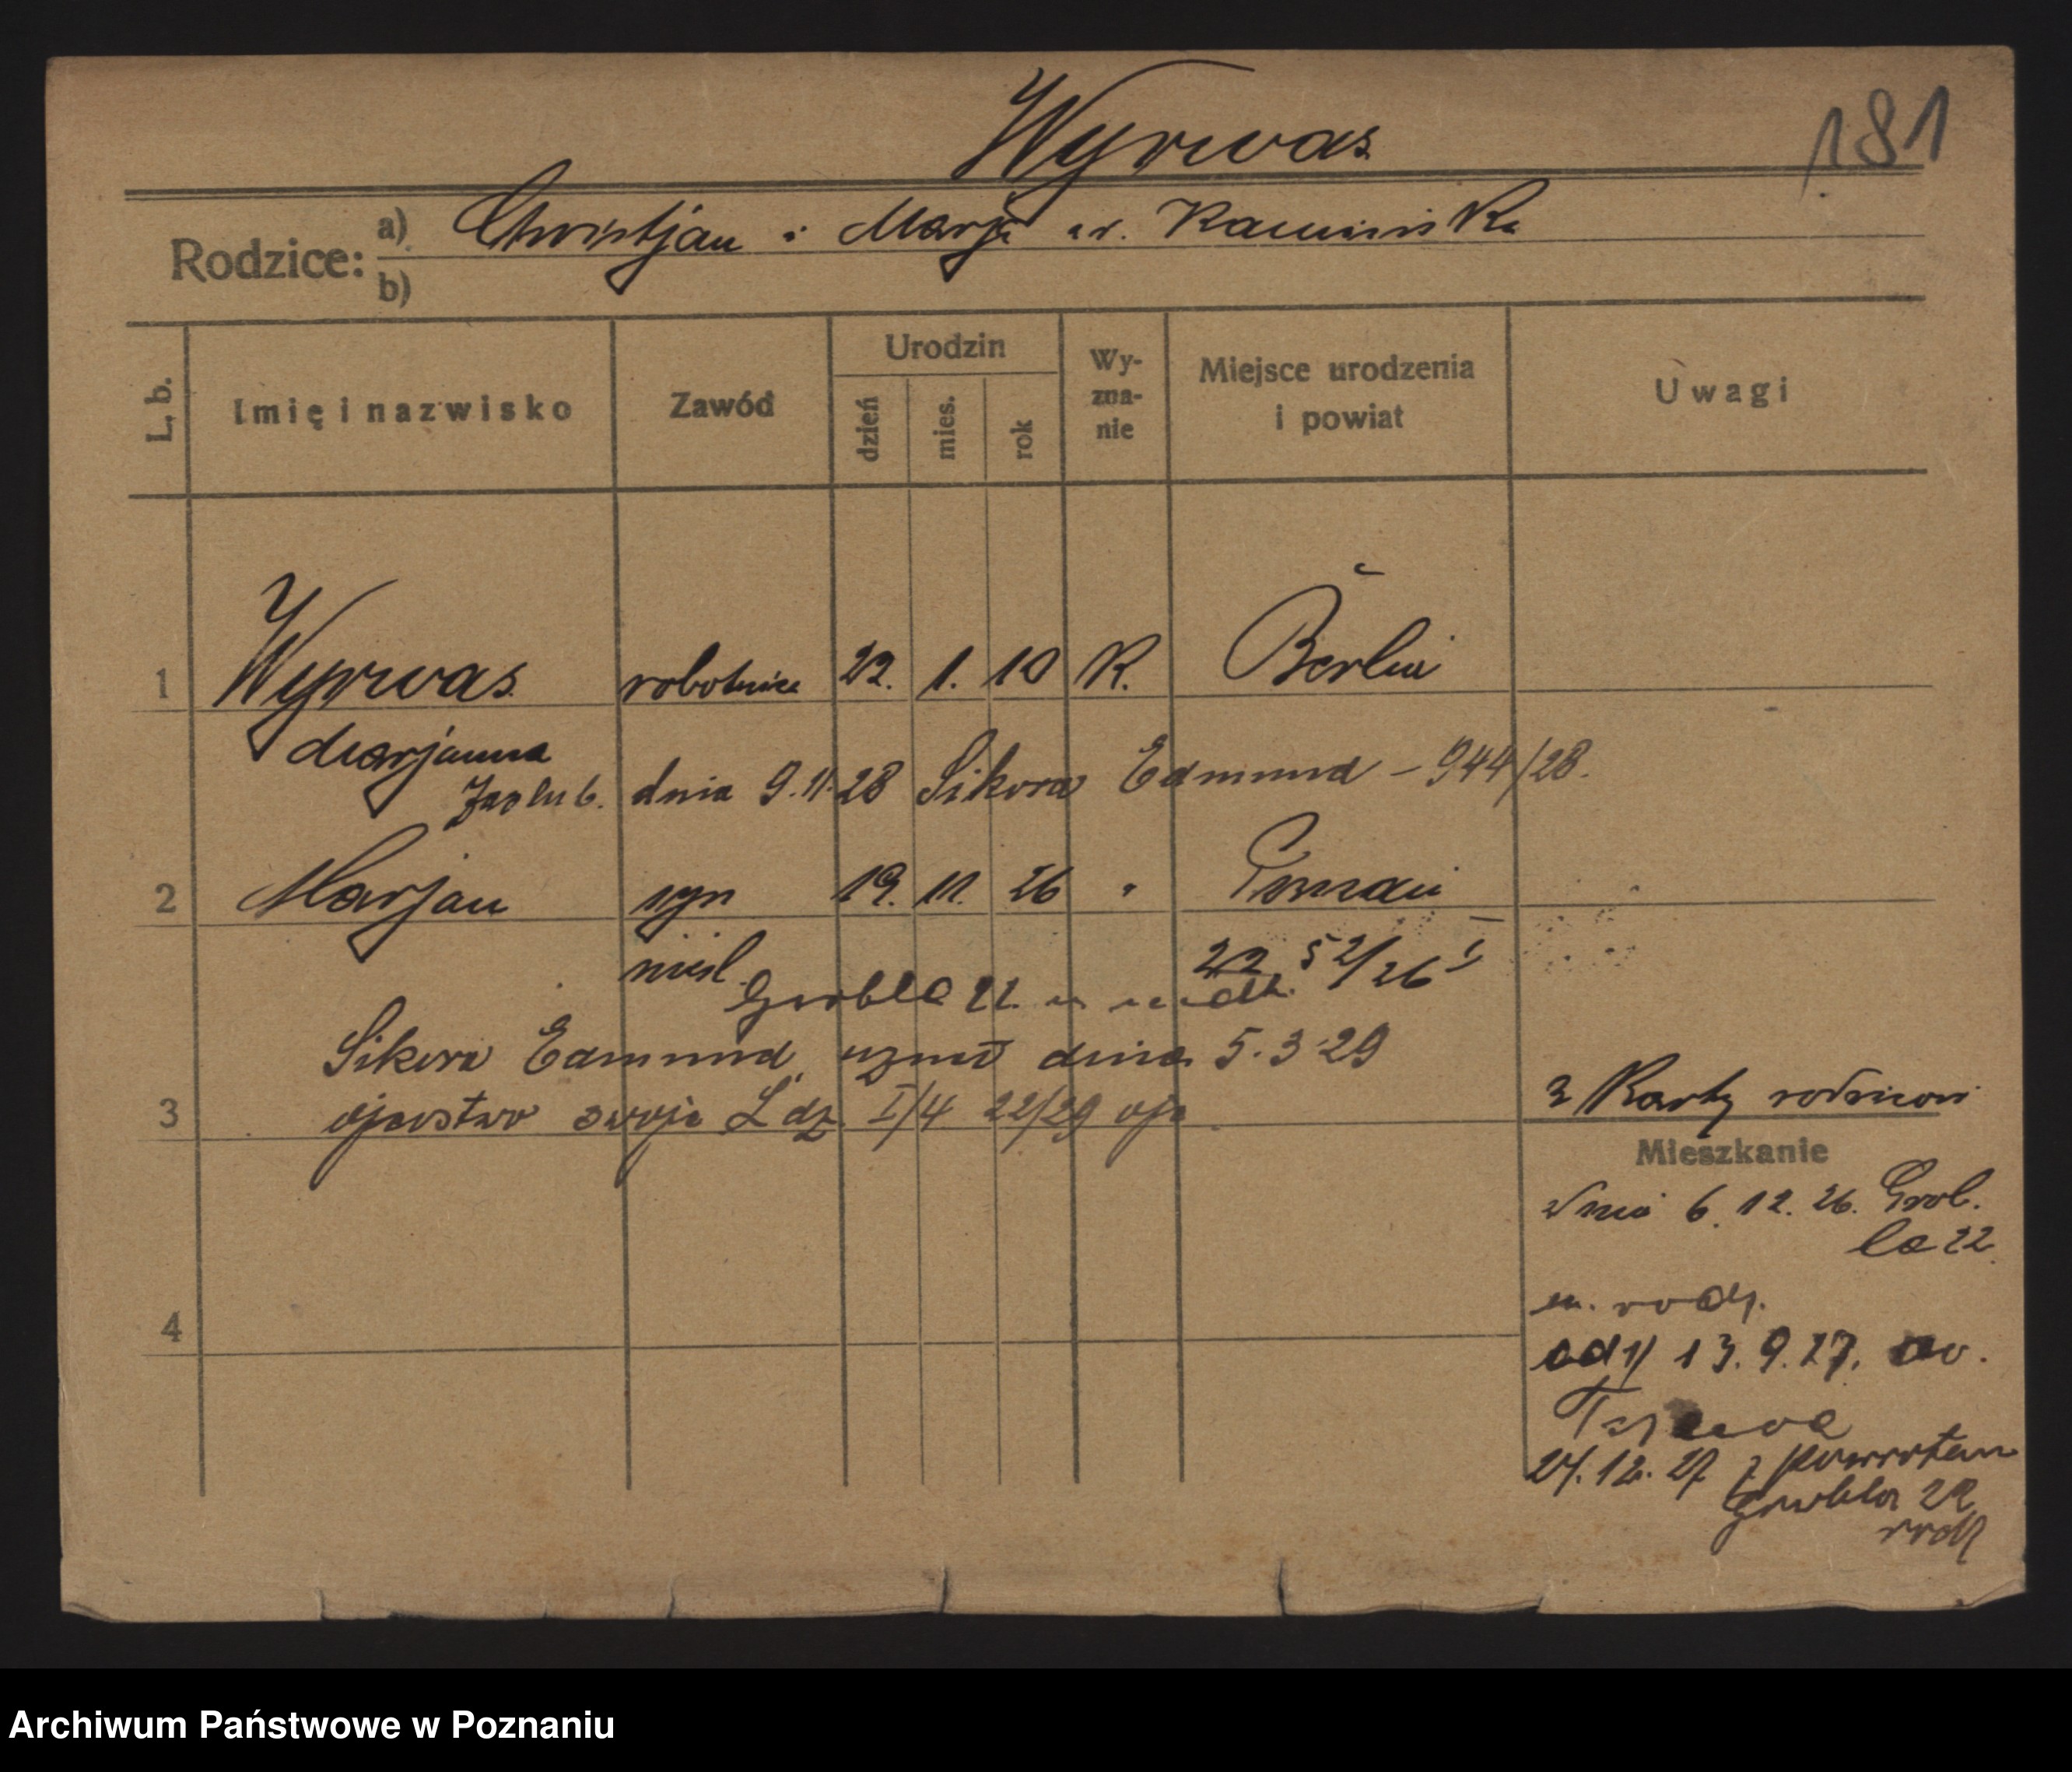 Wyrwas
181
Rodzice: a) Christjan i Marja ur. Kamińska
b)
L. b.
Imię i nazwisko
Zawód
Urodzin
dzień
mies.
rok
Wy-
zna-
nie
Miejsce urodzenia
i powiat
Uwagi
1 Wyrwas robotnica 22. 1. 10 K. Berlin
Marjanna
Zaślub. dnia 9.11.28 Sikora Edmund - 944/28.
2 Marjan syn 19. 11. 26 " Poznań
nieśl.
Grobla 22.
Sikora Edmund uznał dnia 5.3.29
3 ojcostwo swoje L dz. I/4 22/29 ojc
z Karty rodzicow
Mieszkanie
dnia 6. 12. 26. Grob.
la 22
u. rodz.
od 1) 13. 9. 27.
4
24. 12. 27 z powrotem
Grobla 22
rodz
Archiwum Państwowe w Poznaniu